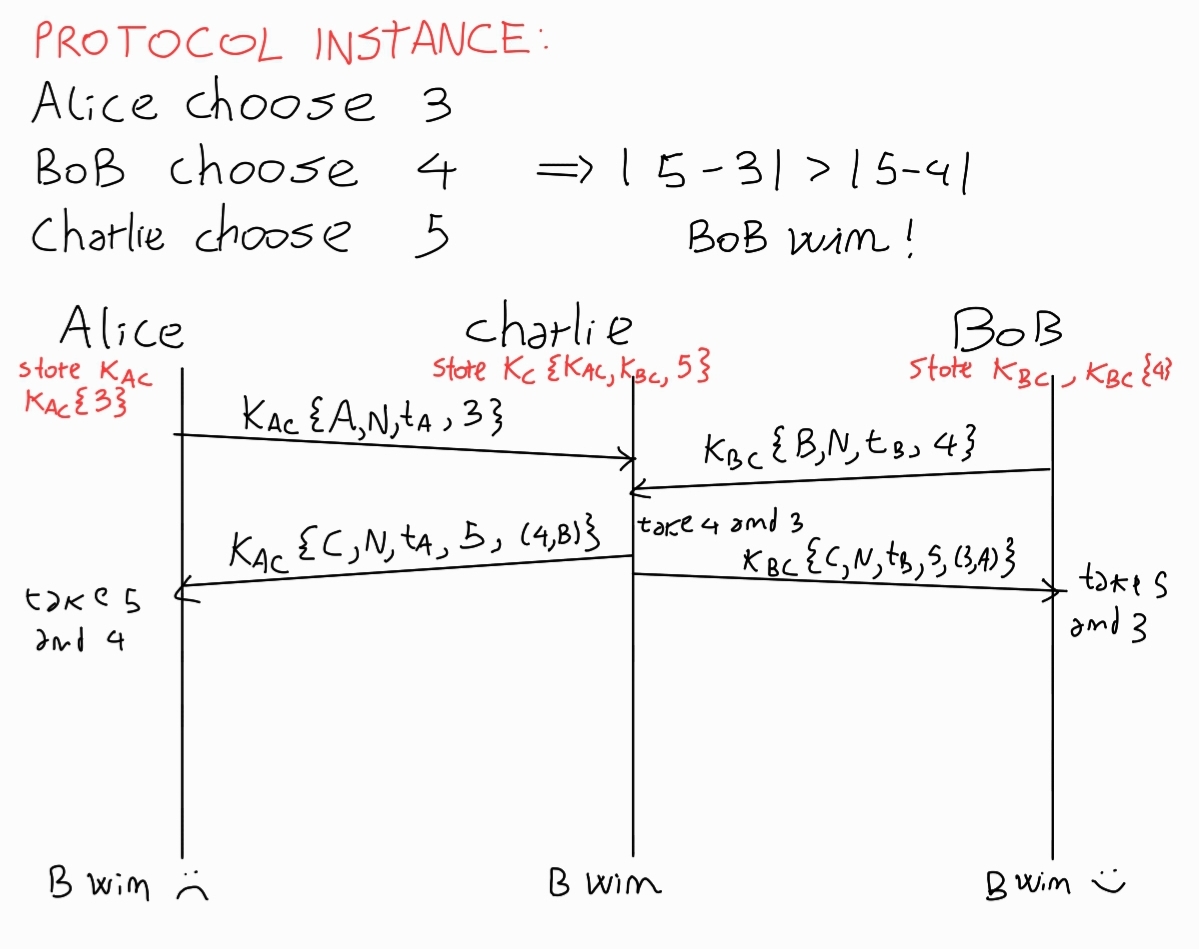 PROTOCOL INSTANCE:
Alice choose 3
BoB choose 4 => | 5 - 3 | > | 5 - 4 |
Charlie choose 5 BoB wim !
Alice charlie BoB
store KAC store KC {KAC, KBC, 5} store KBC, KBC{4}
KAC{3}
KAC {A, N, tA, 3}
KBC {B, N, tB, 4}
take 4 and 3
KAC {C, N, tA, 5, (4,B)}
KBC {C, N, tB, 5, (3,A)}
take 5
and 4
take 5
and 3
B wim :( B wim B wim :)